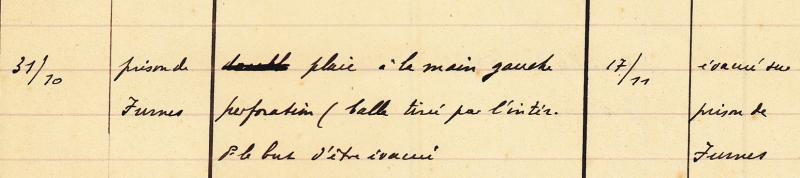 31/10 prison de ~~double~~ plaie à la main gauche 17/11 évacué sur
Furnes perforation (balle tirée par l'intér. prison de
ds le but d'être évacué Furnes